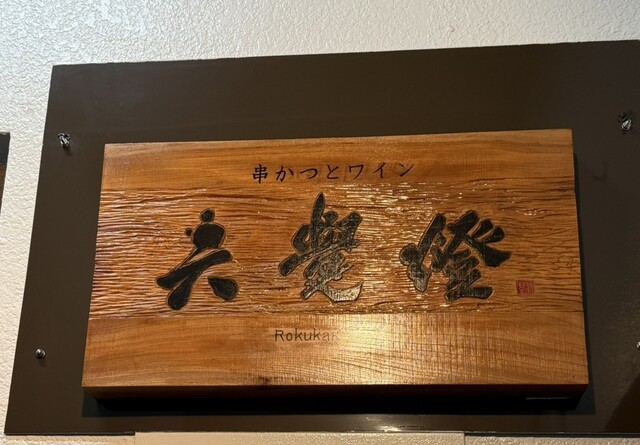 串かつとワイン
六覺燈